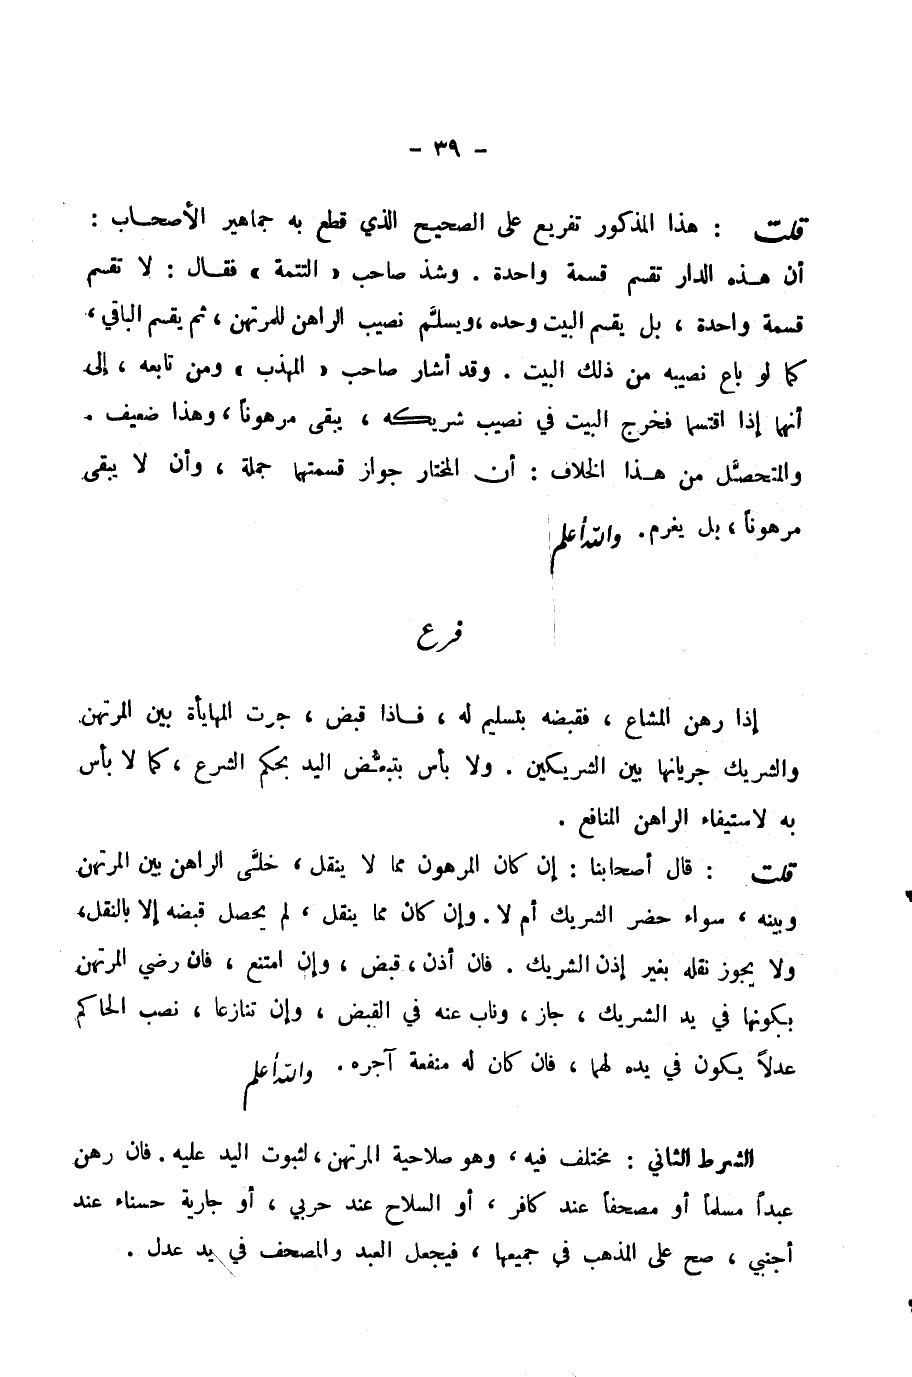 - ٣٩ -
قلت : هذا المذكور تفريع على الصحيح الذي قطع به جماهير الأصحاب :
أن هذه الدار تقسم قسمة واحدة . وشذ صاحب « التتمة » فقال : لا تقسم
قسمة واحدة ، بل يقسم البيت وحده ، ويسلَّم نصيب الراهن للمرتهن ، ثم يقسم الباقي ،
كما لو باع نصيبه من ذلك البيت . وقد أشار صاحب « المهذب » ومن تابعه ، إلى
أنهما إذا اقتسما فخرج البيت في نصيب شريكه ، يبقى مرهوناً ، وهذا ضعيف .
والمتحصَّل من هذا الخلاف : أن المختار جواز قسمتها جملة ، وأن لا يبقى
مرهوناً ، بل يغرم . والله أعلم
فرع
إذا رهن المشاع ، فقبضه بتسليم له ، فاذا قبض ، جرت المهايأة بين المرتهن
والشريك جريانها بين الشريكين . ولا بأس بتبعُّض اليد بحكم الشرع ، كما لا بأس
به لاستيفاء الراهن المنافع .
قلت : قال أصحابنا : إن كان المرهون مما لا ينقل ، خلَّى الراهن بين المرتهن
وبينه ، سواء حضر الشريك أم لا . وإن كان مما ينقل ، لم يحصل قبضه إلا بالنقل ،
ولا يجوز نقله بغير إذن الشريك . فان أذن ، قبض ، وإن امتنع ، فان رضي المرتهن
بكونها في يد الشريك ، جاز ، وناب عنه في القبض ، وإن تنازعا ، نصب الحاكم
عدلاً يكون في يده لهما ، فان كان له منفعة آجره . والله أعلم
الشرط الثاني : مختلف فيه ، وهو صلاحية المرتهن ، لثبوت اليد عليه . فان رهن
عبداً مسلماً أو مصحفاً عند كافر ، أو السلاح عند حربي ، أو جارية حسناء عند
أجنبي ، صح على المذهب في جميعها ، فيجعل العبد والمصحف في يد عدل .